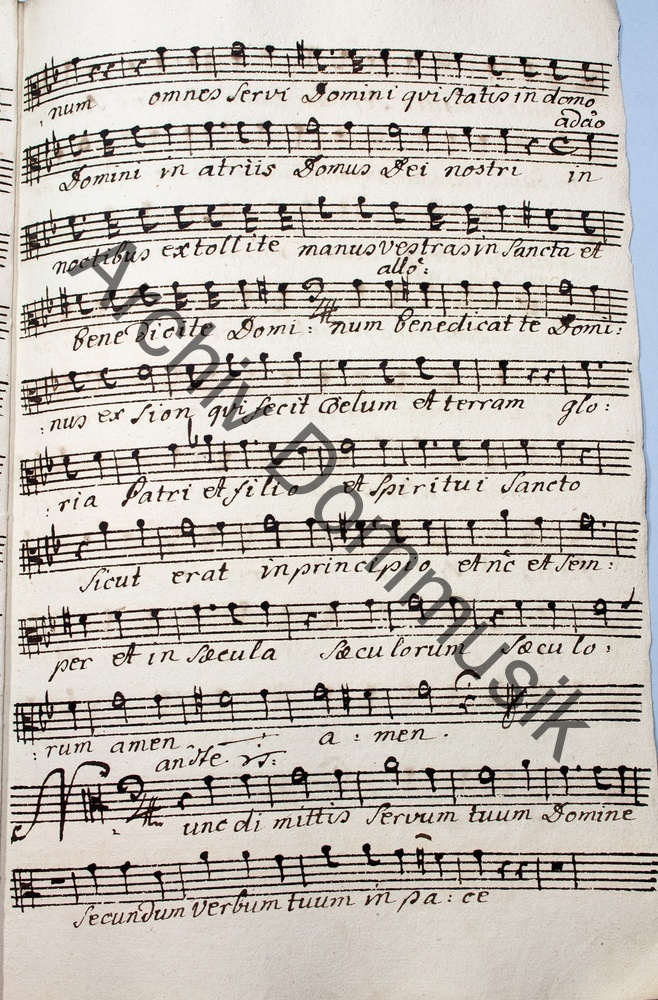 : num omnes servi Domini qui statis in domo
adaio
Domini in atriis Domus Dei nostri in
noctibus extollite manus vestras in Sancta et
allo:
benedicite Domi : num benedicat te Domi:
: nus ex Sion qui fecit Coelum et terram glo:
: ria Patri et filio et Spiritui Sancto
sicut erat in principio et nc et sem:
per et in Sæcula Sæculorum Sæculo:
: rum amen a : men .
andte
Nunc di mittis Servum tuum Domine
Secundum verbum tuum in pa : ce
Archiv Dommusik